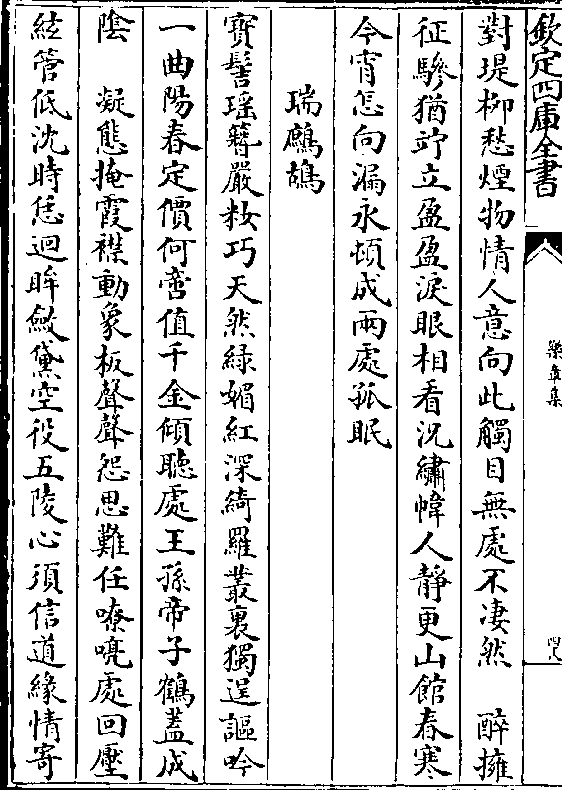 欽定四庫全書
樂章集
對堤柳愁煙物情人意向此觸目無處不凄然　醉擁
征驂猶竚立盈盈淚眼相看況繡幃人靜更山館春寒
今宵怎向漏永頓成兩處孤眠
瑞鷓鴣
寳髻瑶簪嚴粧巧天然緑媚紅深綺羅叢裏獨逞謳吟
一曲陽春定價何啻值千金傾聽處王孫帝子鶴葢成
陰　凝態掩霞襟動象板聲聲怨思難任嘹喨處回壓
絃管低沈時恁迴眸斂黛空役五陵心須信道緣情寄